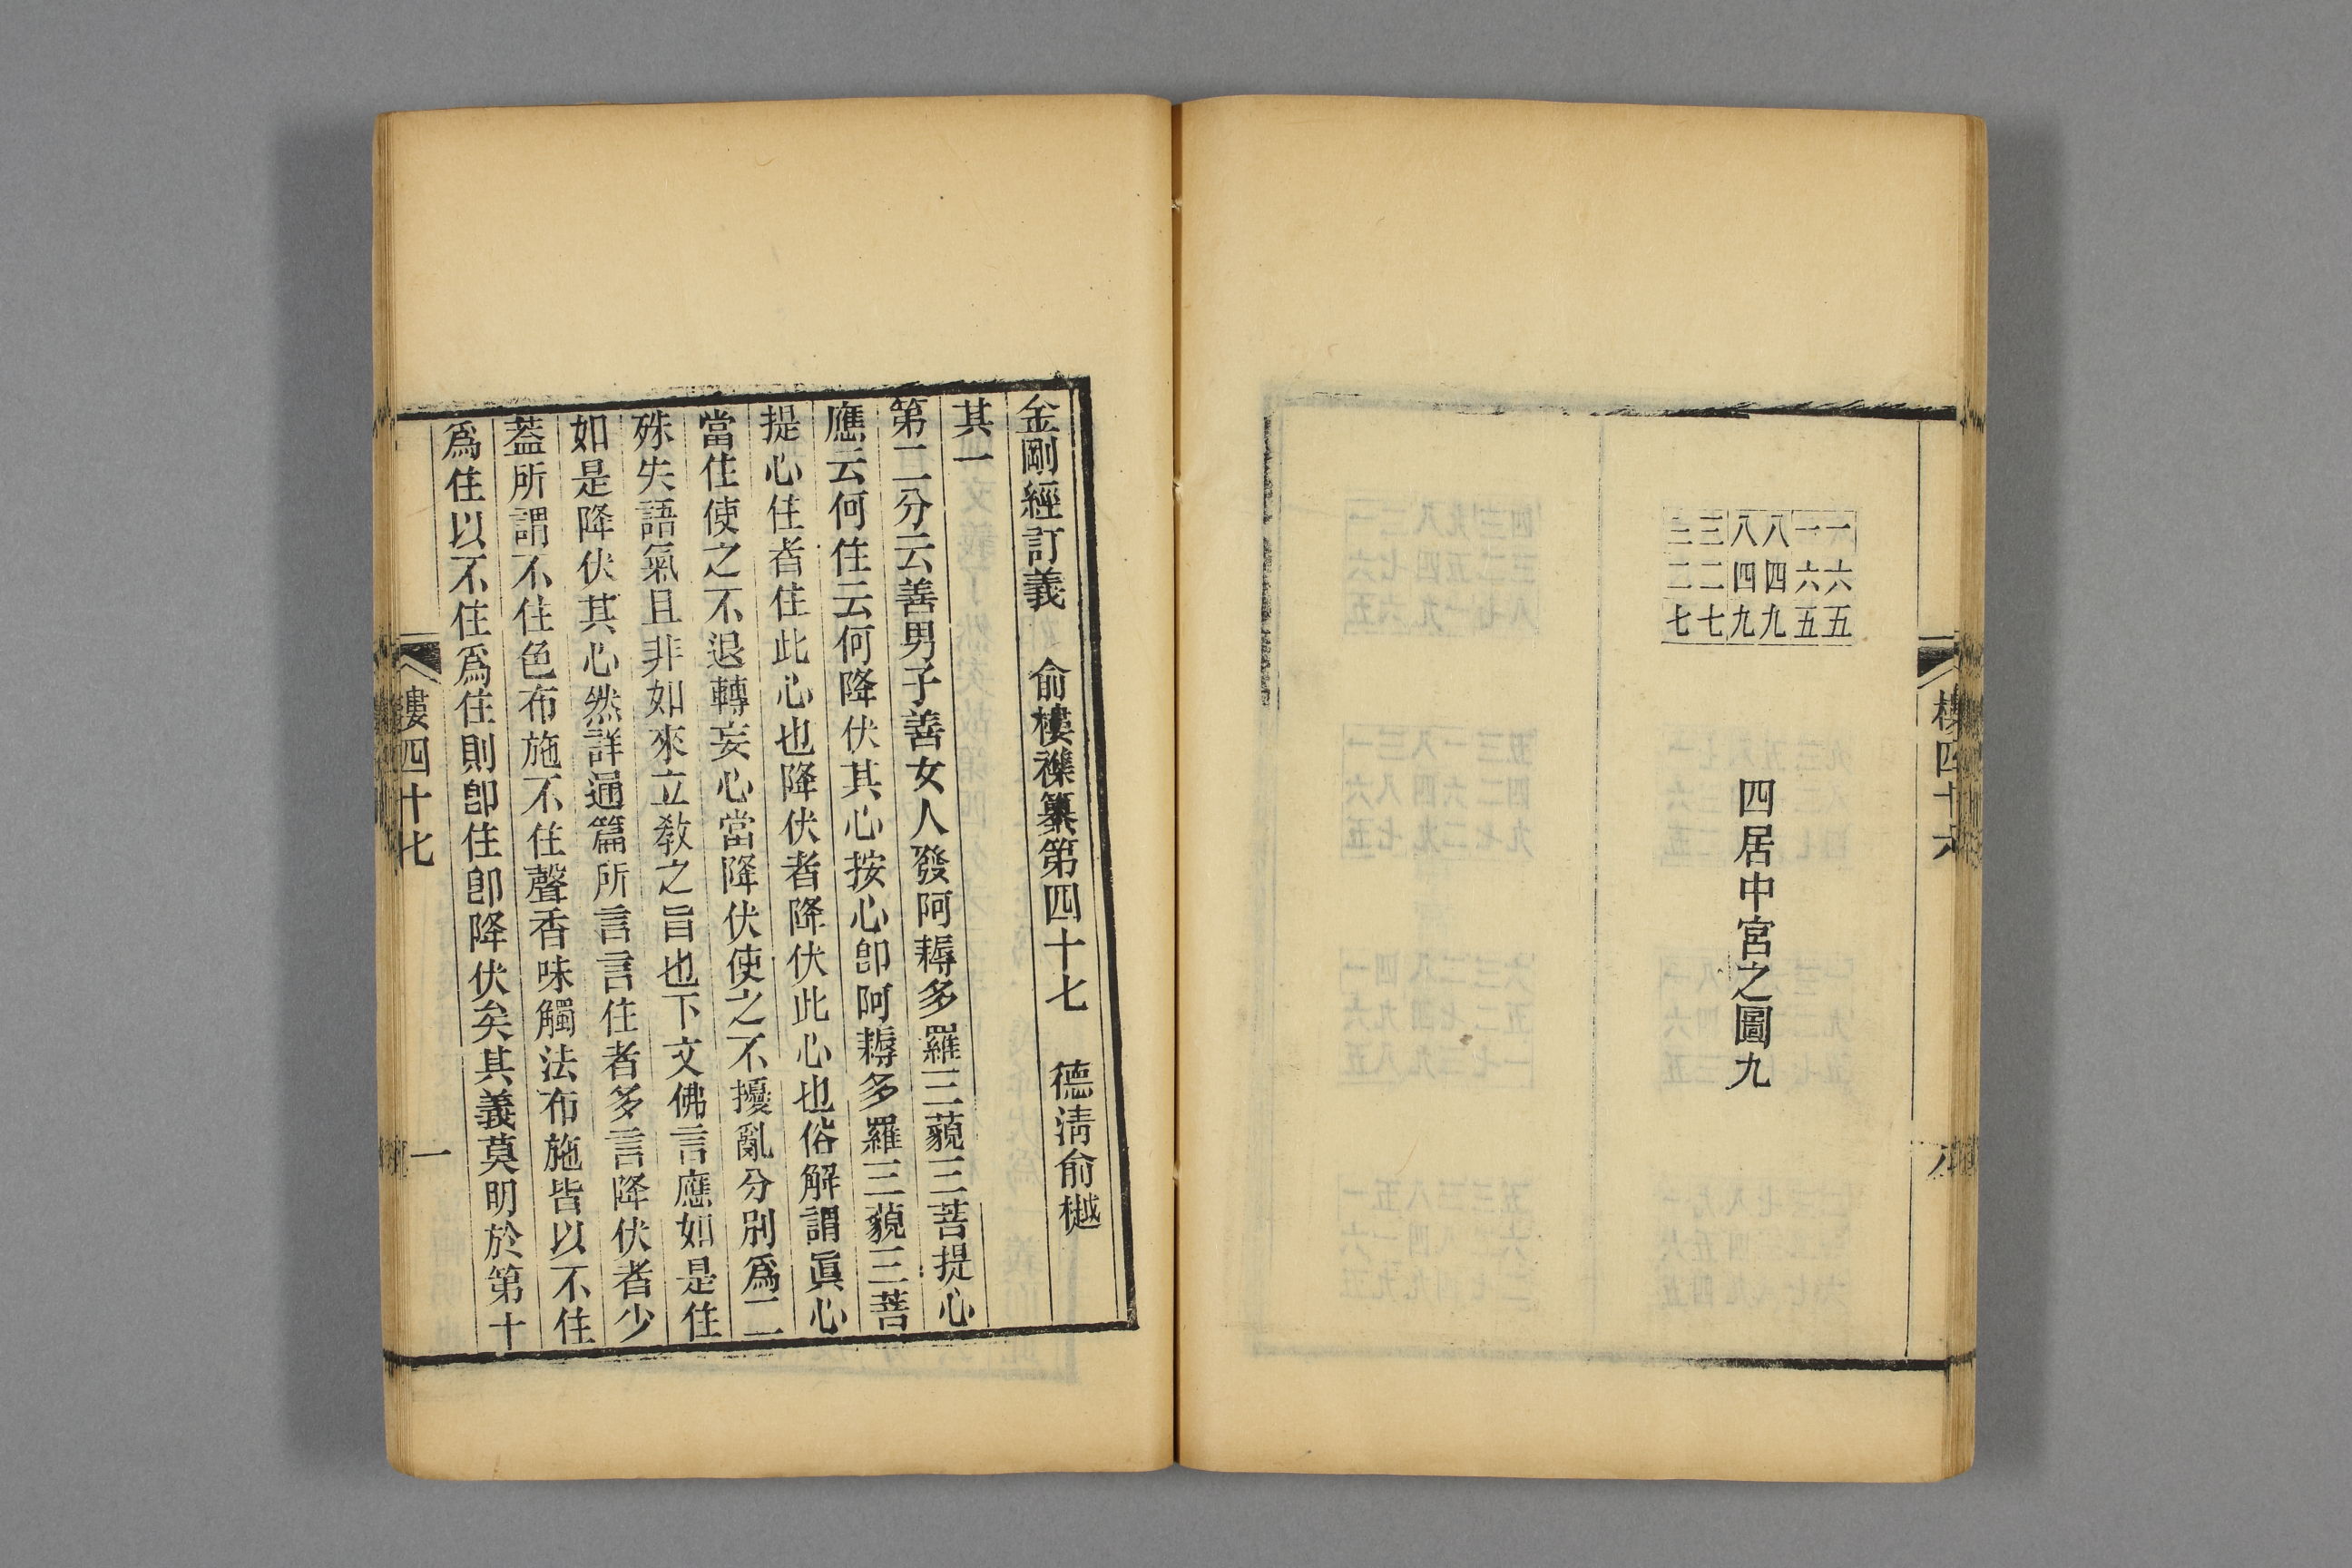 樓四十六
一六五
一六五
八四九
八四九
三二七
三二七
四居中宮之圖九
金剛經訂義　俞樓襍纂第四十七　德淸俞樾
其一
第二分云善男子善女人發阿耨多羅三藐三菩提心
應云何住云何降伏其心按心卽阿耨多羅三藐三菩
提心住者住此心也降伏者降伏此心也俗解謂眞心
當住使之不退轉妄心當降伏使之不擾亂分別爲二
殊失語氣且非如來立敎之旨也下文佛言應如是住
如是降伏其心然詳通篇所言言住者多言降伏者少
葢所謂不住色布施不住聲香味觸法布施皆以不住
爲住以不住爲住則卽住卽降伏矣其義莫明於第十
樓四十七
一